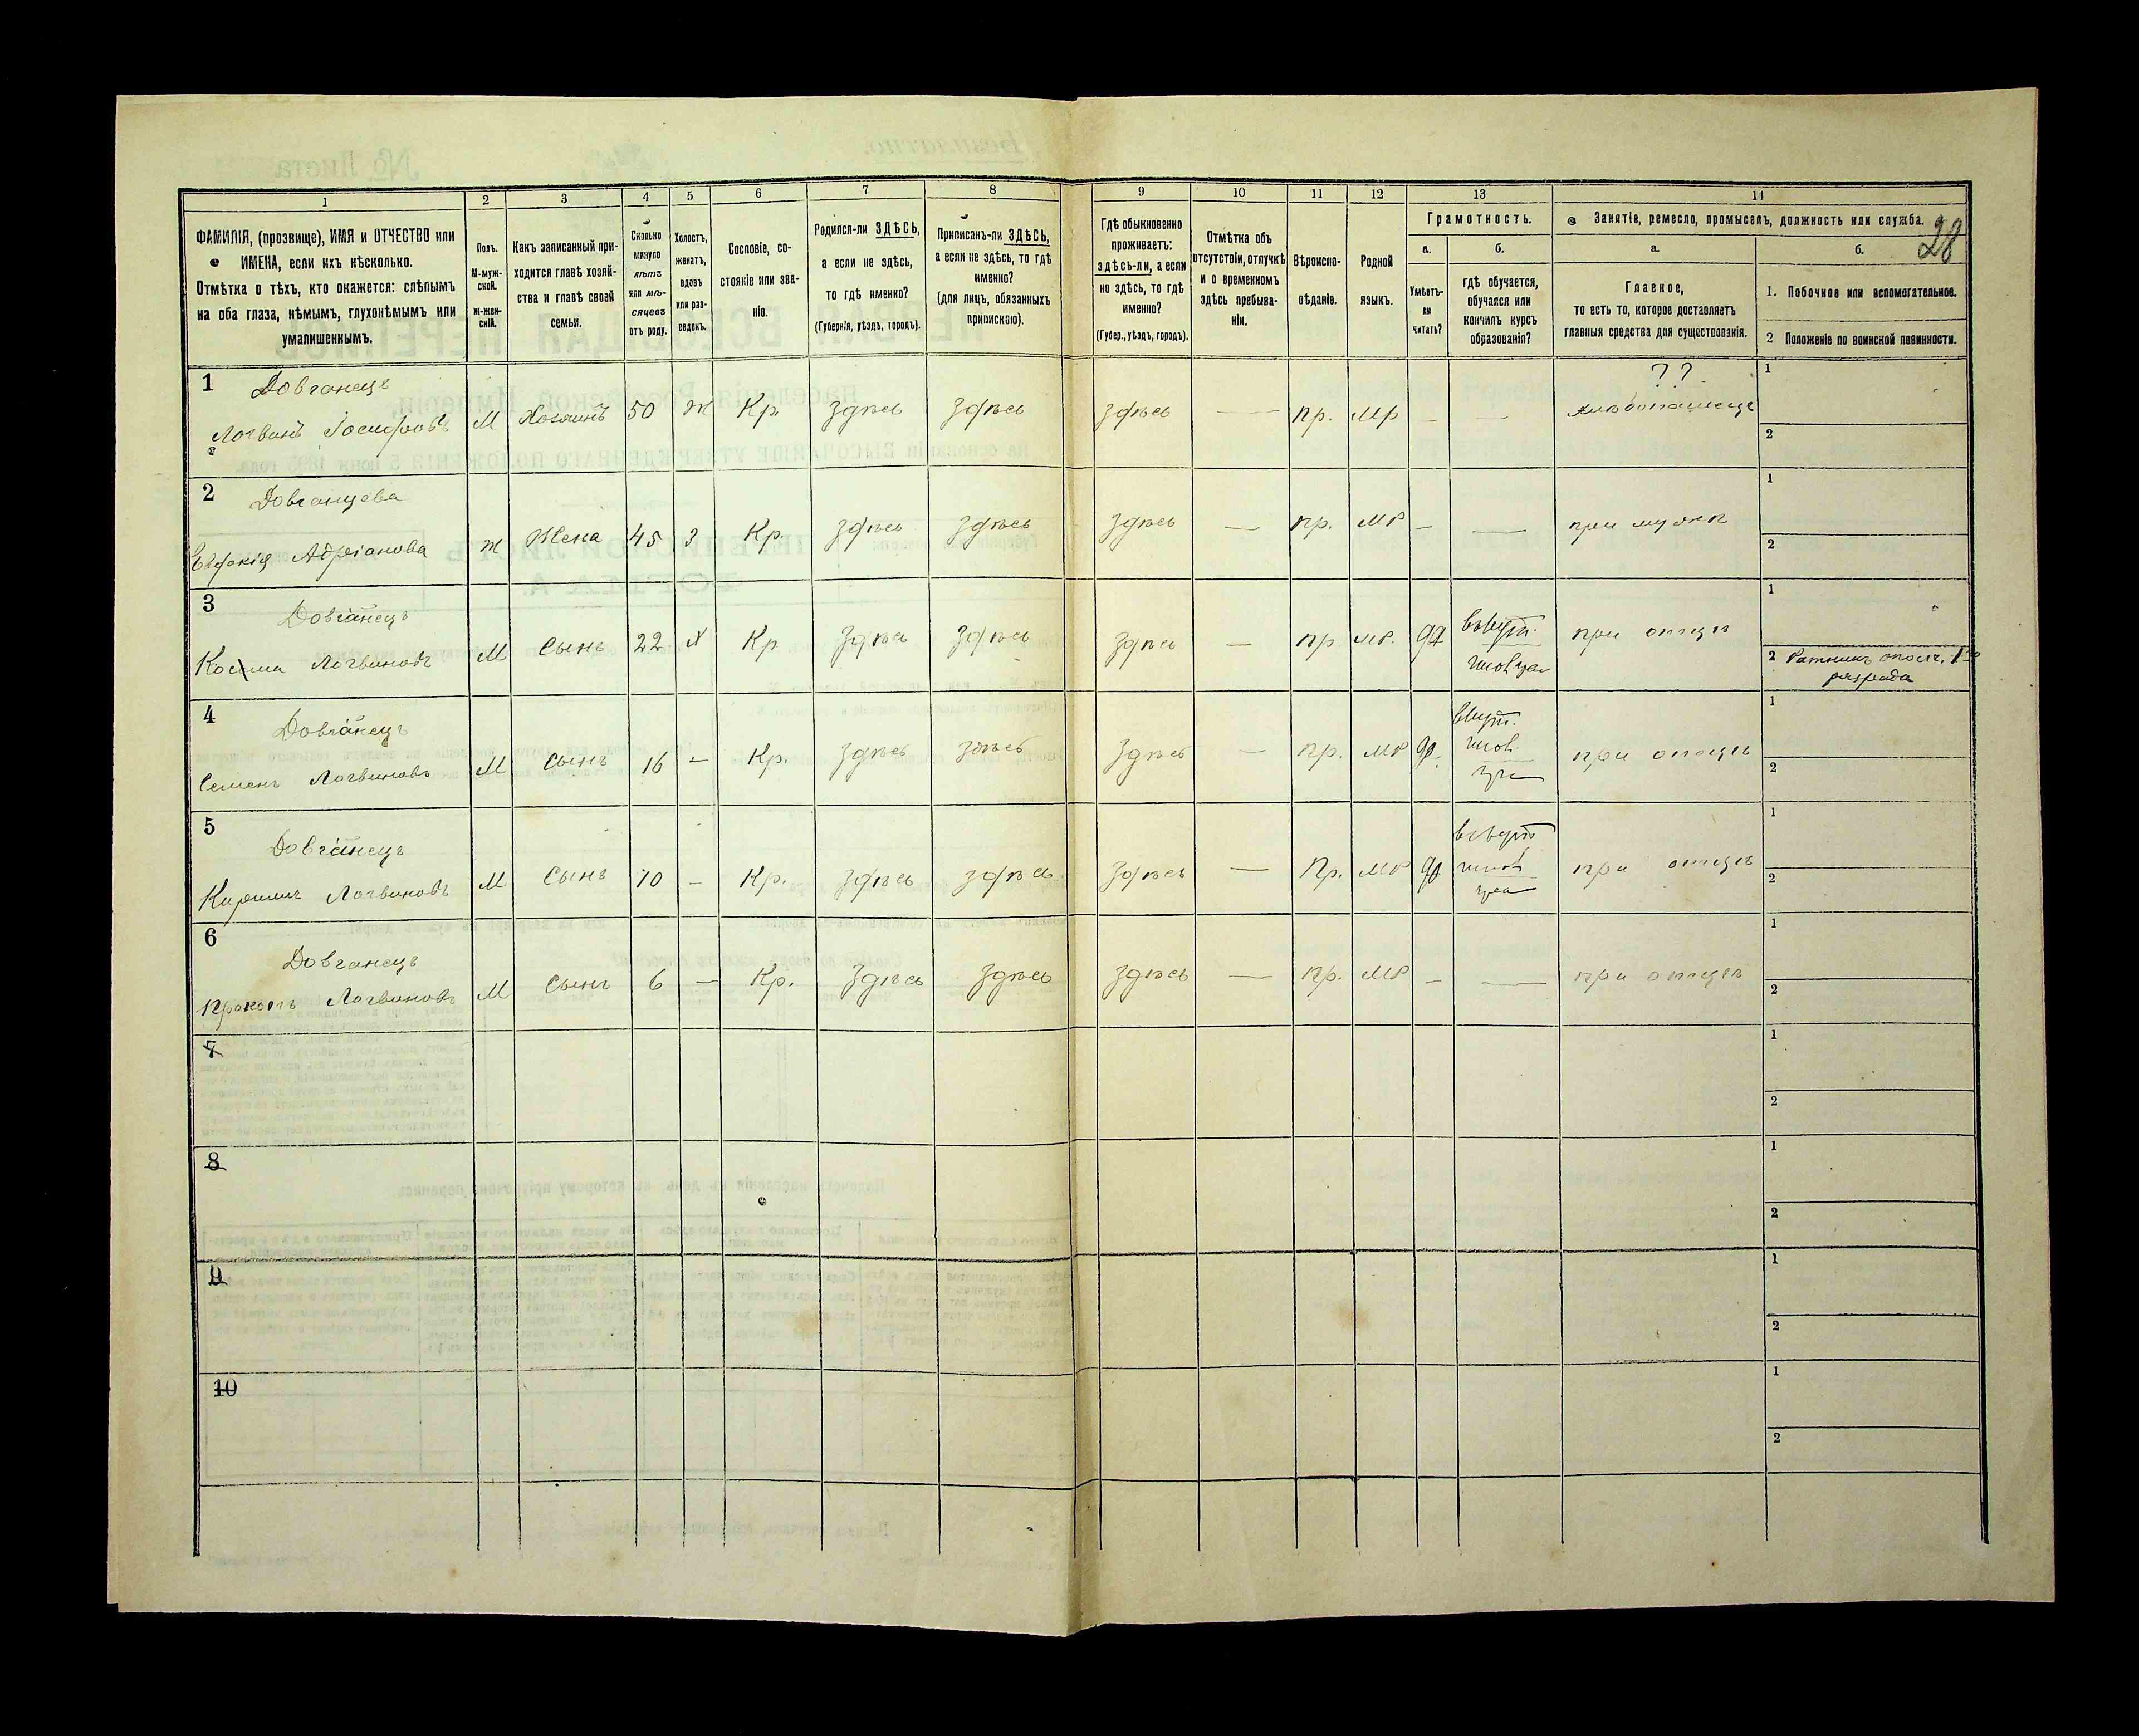 28
1 2 3 4 5 6 7 8 9 10 11 12 13 14
ФАМИЛІЯ, (прозвище), ИМЯ и ОТЧЕСТВО или
ИМЕНА, если ихъ нѣсколько.
Отмѣтка о тѣхъ, кто окажется: слѣпымъ
на оба глаза, нѣмымъ, глухонѣмымъ или
умалишеннымъ.
Полъ.
М-муж-
ской.
Ж-жен-
скій.
Какъ записанный при-
ходится главѣ хозяй-
ства и главѣ своей
семьи.
Сколько
минуло
лѣтъ
или мѣ-
сяцевъ
отъ роду.
Холостъ,
женатъ,
вдовъ
или раз-
веденъ.
Сословіе, со-
стояніе или зва-
ніе.
Родился-ли ЗДѢСЬ,
а если не здѣсь,
то гдѣ именно?
(Губернія, уѣздъ, городъ).
Приписанъ-ли ЗДѢСЬ,
а если не здѣсь, то гдѣ
именно?
(для лицъ, обязанныхъ
припискою).
Гдѣ обыкновенно
проживаетъ:
здѣсь-ли, а если
не здѣсь, то гдѣ
именно?
(Губер., уѣздъ, городъ).
Отмѣтка объ
отсутствіи, отлучкѣ
и о временномъ
здѣсь пребыва-
ніи.
Вѣроиспо-
вѣданіе.
Родной
языкъ.
Грамотность.
а.
Умѣетъ-
ли
читать?
б.
гдѣ обучается,
обучался или
кончилъ курсъ
образованія?
Занятіе, ремесло, промыселъ, должность или служба.
а.
Главное,
то есть то, которое доставляетъ
главныя средства для существованія.
б.
1. Побочное или вспомогательное.
2 Положеніе по воинской повинности.
1 Довганецъ
Логвинъ Іосифовъ М Хозяинъ 50 Ж Кр. здѣсь здѣсь здѣсь — пр. мр — — ?? хлѣбопашецъ 1
2
2 Довганцева
Евдокія Адріанова ж Жена 45 З Кр. здѣсь здѣсь здѣсь — пр. мр — — при мужѣ 1
2
3 Довганецъ
Косьма Логвиновъ М сынъ 22 Х Кр здѣсь здѣсь здѣсь — пр мр. да при отцѣ 1
2 Ратникъ ополч. 1го
разряда
4 Довганецъ
Семенъ Логвиновъ М сынъ 16 — Кр. здѣсь здѣсь здѣсь — пр. мр да при отцѣ 1
2
5 Довганецъ
Кириллъ Логвиновъ М сынъ 10 — Кр. здѣсь здѣсь здѣсь — Пр. мр да при отцѣ 1
2
6 Довганецъ
Прокопъ Логвиновъ М сынъ 6 — Кр. здѣсь здѣсь здѣсь — пр. мр — — при отцѣ 1
2
7 1
2
8 1
2
9 1
2
10 1
2